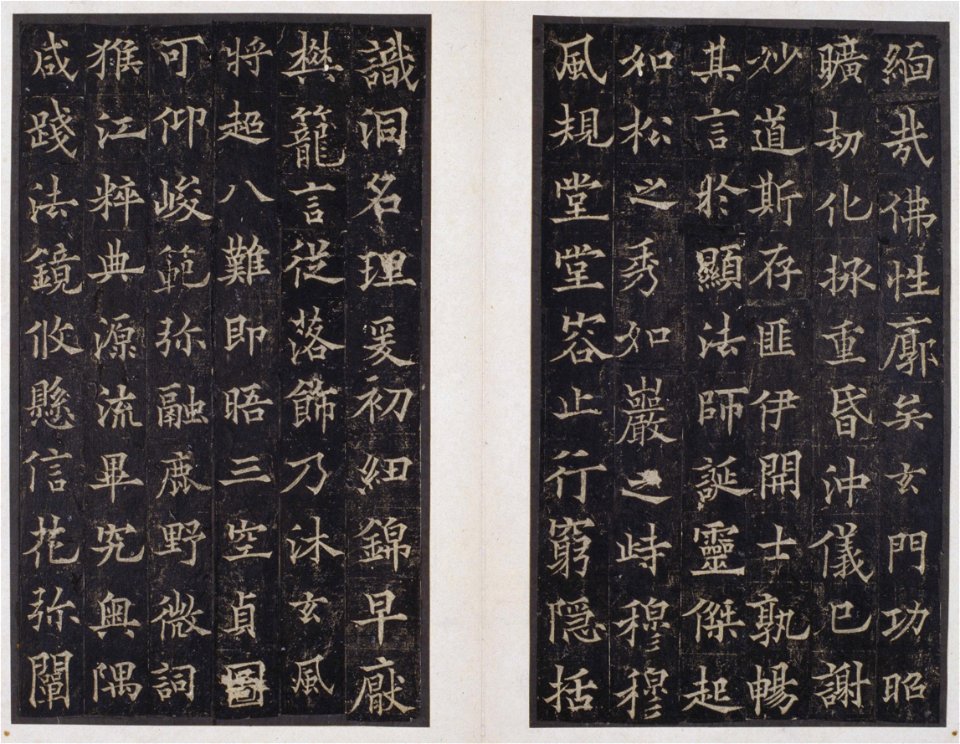 緬哉佛性廓矣玄門功昭
曠劫化拯重昏沖儀已謝
妙道斯存匪伊開士孰暢
其言於顯法師誕靈傑起
如松之秀如巖之峙穆穆
風規堂堂容止行窮隱括
識洞名理爰初細錦早厭
樊籠言從落飾乃沐玄風
將超八難即晤三空貞圖
可仰峻範弥融鹿野微詞
猴江粹典源流畢究奧隅
咸踐法鏡攸懸信花弥闡